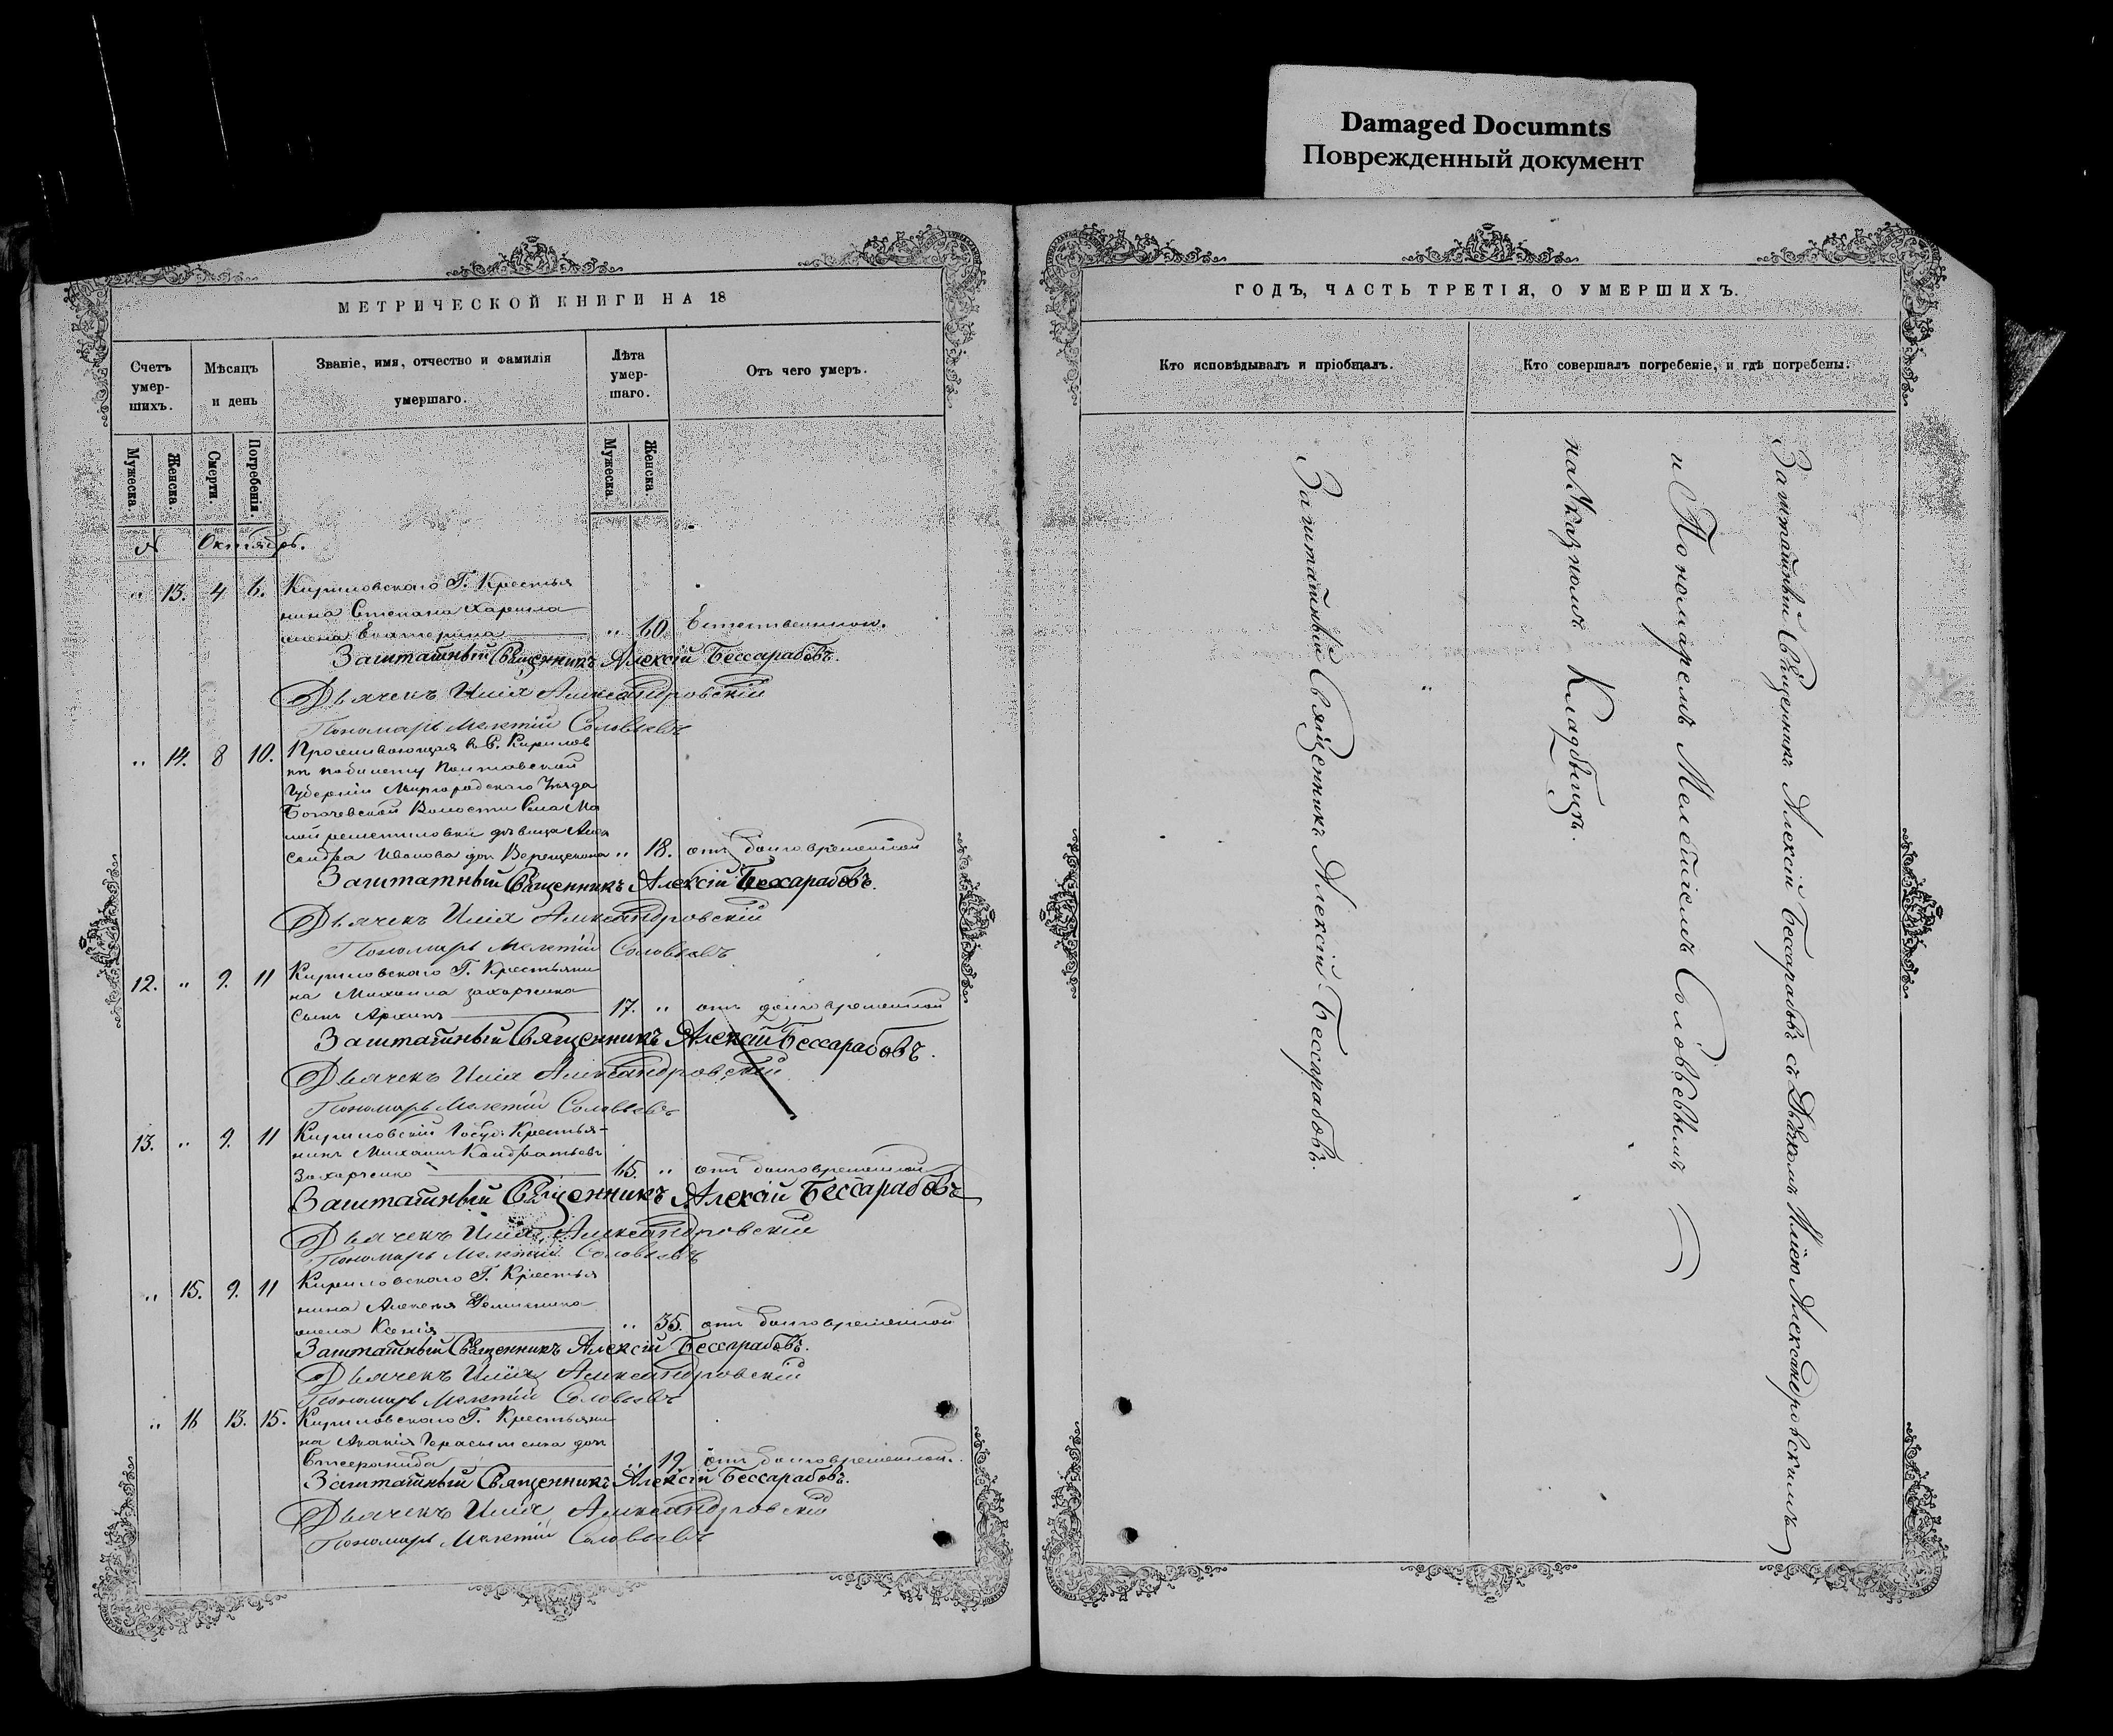 Damaged Documnts
Поврежденный документ
МЕТРИЧЕСКОЙ КНИГИ НА 18
Счетъ умер-шихъ.
Мѣсяцъ и день
Званіе, имя, отчество и фамилія умершаго.
Лѣта умер-шаго.
Отъ чего умеръ.
Мужеска.
Женска.
Смерти.
Погребенія.
Мужеска.
Женска.
Октябрь.
" 13. 4 6. Кириловскаго Г. Крестья
нина Степана Харила
жена Екатерина " 60. Естественной.
Заштатный Священникъ Алексій Бессарабовъ.
Дьячекъ Илія Александровскій
Пономарь Мелетій Соловьевъ
" 14. 8 10. Проживающая въ С. Кирилов
кѣ по билету Полтавской
Губерніи Миргородскаго Уѣзда
Богачевской Волости Села Ма
лой решетиловки дѣвица Алек
сандра Иванова доч. " 18. отъ долговременной
Заштатный Священникъ Алексій Бессарабовъ.
Дьячекъ Илія Александровскій
Пономарь Мелетій Соловьевъ
12. " 9. 11 Кириловскаго Г. Крестьяни
на Михаила захарченка
сынъ Архипъ 17. " отъ долговременной
Заштатный Священникъ Алексій Бессарабовъ.
Дьячекъ Илія Александровскій
Пономарь Мелетій Соловьевъ
13. " 9. 11 Кириловскій Госуд. Крестья-
нинъ Михаилъ Кондратьевъ
Захарченко 65. " отъ долговременной
Заштатный Священникъ Алексій Бессарабовъ
Дьячекъ Илія Александровскій
Пономарь Мелетій Соловьевъ
" 15. 9. 11 Кириловскаго Г. Крестья
нина Алексея
жена Ксенія " 35. отъ долговременной
Заштатный Священникъ Алексій Бессарабовъ.
Дьячекъ Илія Александровскій
Пономарь Мелетій Соловьевъ
" 16 13. 15. Кириловскаго Г. Крестьяни
на Акакія Герасименка доч.
" 19. отъ долговременной.
Заштатный Священникъ Алексій Бессарабовъ.
Дьячекъ Илія Александровскій
Пономарь Мелетій Соловьевъ
ГОДЪ, ЧАСТЬ ТРЕТІЯ, О УМЕРШИХЪ.
Кто исповѣдывалъ и пріобщалъ.
Кто совершалъ погребеніе, и гдѣ погребены.
Заштатный Священникъ Алексій Бессарабовъ.
Заштатный Священникъ Алексій Бессарабовъ съ Дьячкомъ Иліею Александровскимъ
и Пономаремъ Мелетіемъ Соловьевымъ
на Указномъ Кладбищѣ.